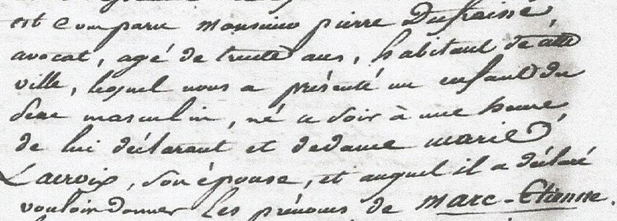 est Comparu Monsieur pierre Dufraisse
avocat, agé de trente ans, habitant de cette
ville, lequel nous a présenté un enfant du
Sexe masculin, né ce soir à une heure
de lui déclarant et de dame marie
Lacroix, Son épouse, et auquel il a déclaré
vouloir donner les prénoms de Marc-Etienne.